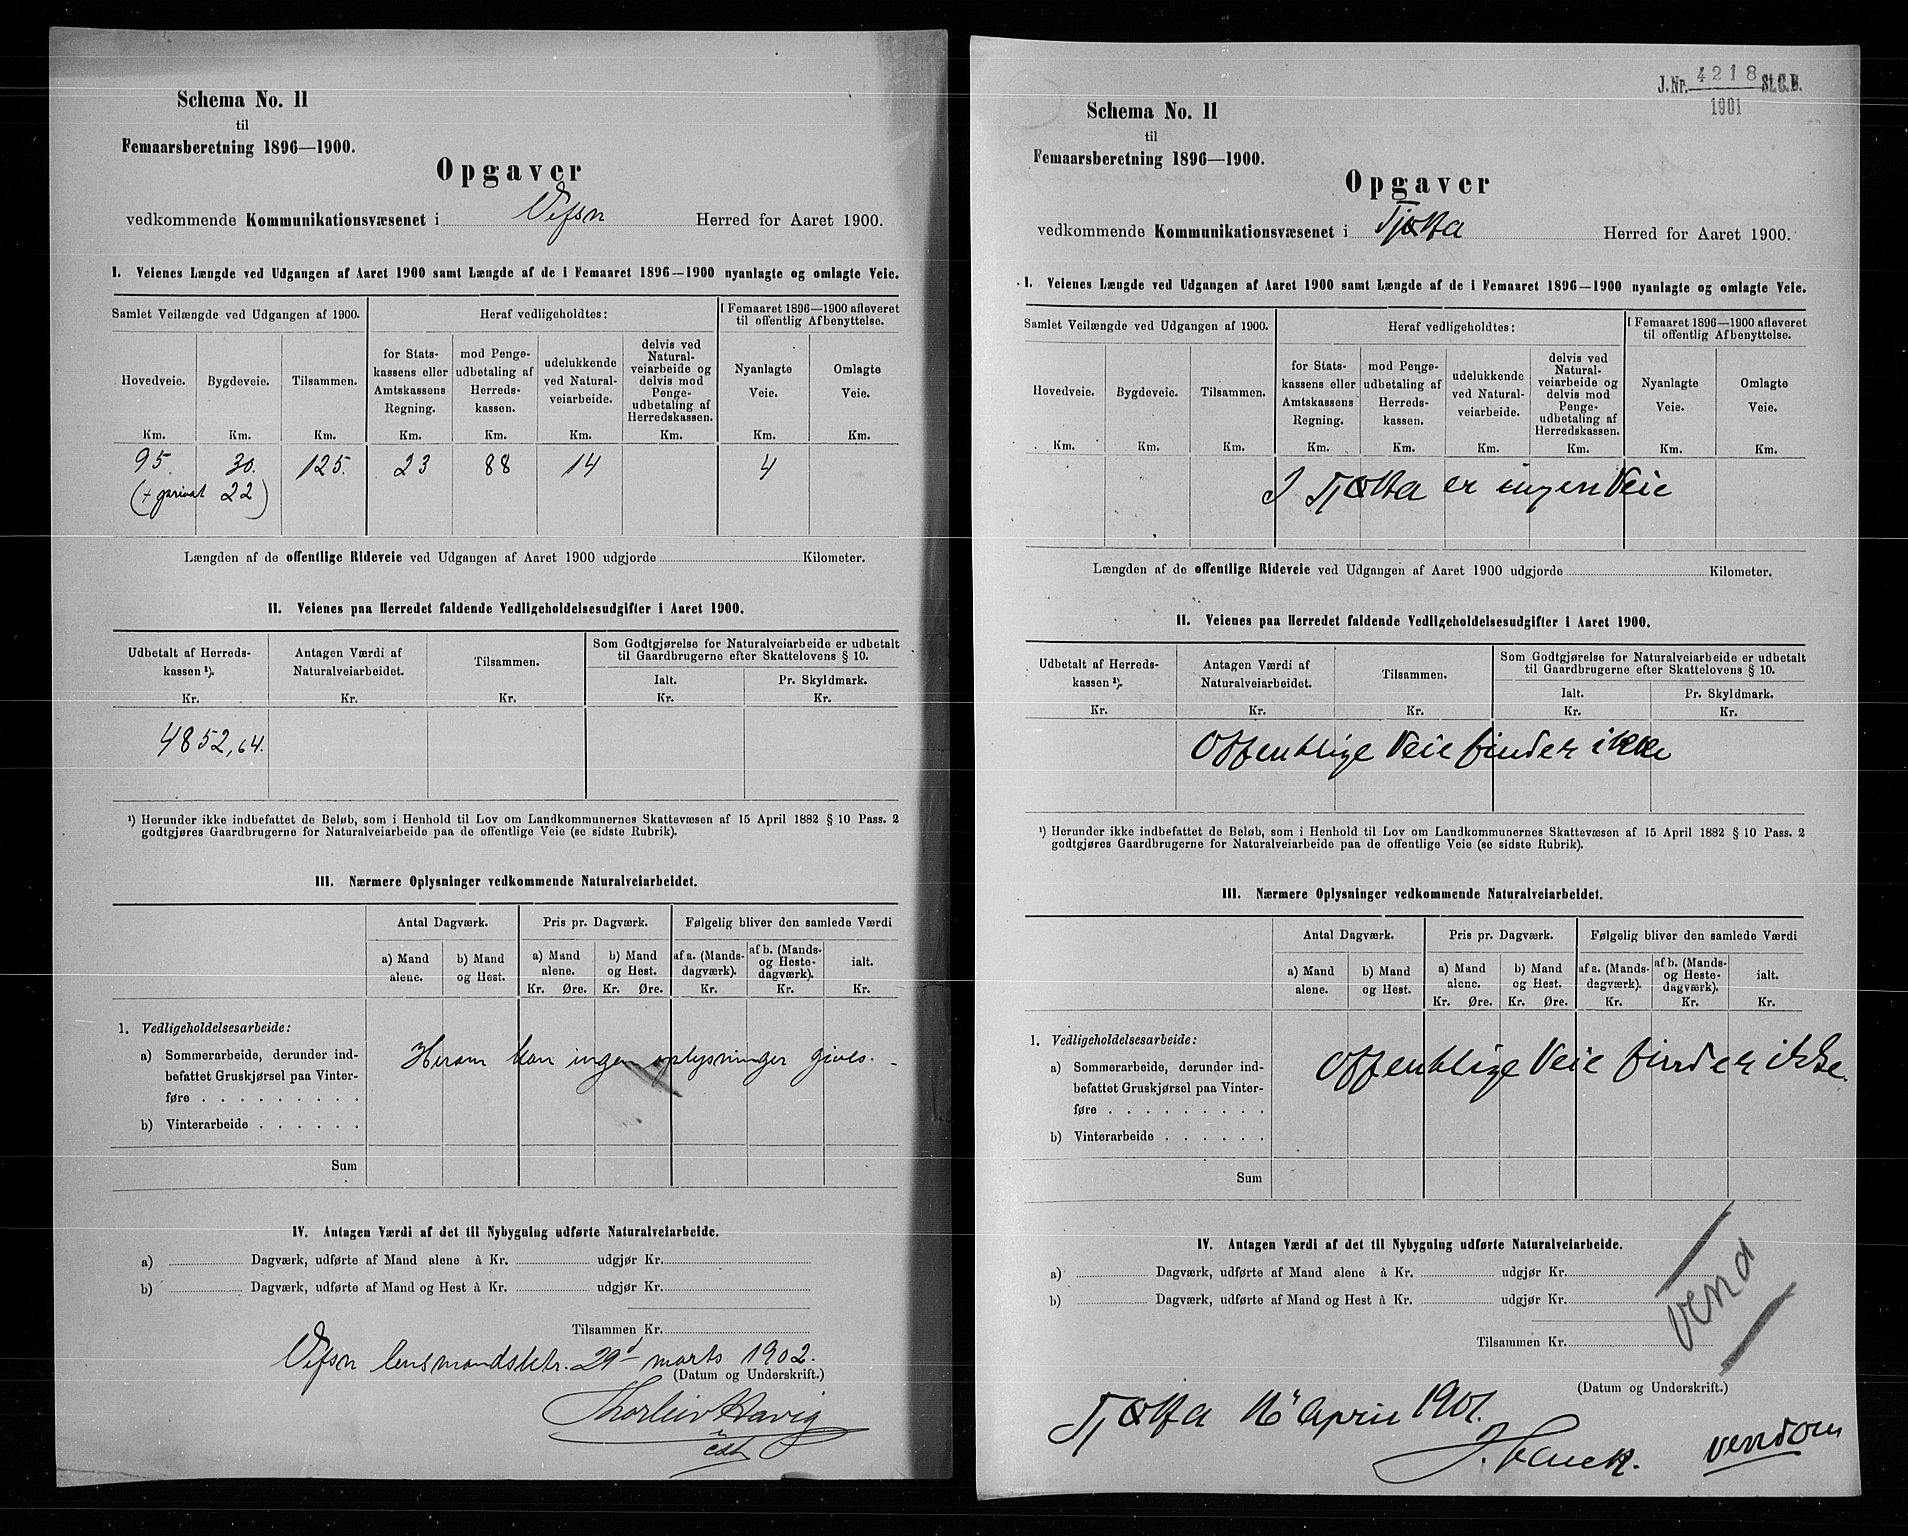 Schema No. 11
til
Femaarsberetning 1896—1900.
Opgaver
vedkommende Kommunikationsvæsenet i Vefsn Herred for Aaret 1900.
I. Veienes Længde ved Udgangen af Aaret 1900 samt Længde af de i Femaaret 1896—1900 nyanlagte og omlagte Veie.
Samlet Veilængde ved Udgangen af 1900.
Heraf vedligeholdtes:
I Femaaret 1896—1900 afleveret til offentlig Afbenyttelse.
Hovedveie.
Bygdeveie.
Tilsammen.
for Statskassens eller Amtskassens Regning.
mod Pengeudbetaling af Herredskassen.
udelukkende ved Naturalveiarbeide.
delvis ved Naturalveiarbeide og delvis mod Pengeudbetaling af Herredskassen.
Nyanlagte Veie.
Omlagte Veie.
Km. Km. Km. Km. Km. Km. Km. Km. Km.
95. 30. 125. 23 88 14 4
(+ privat 22)
Længden af de offentlige Rideveie ved Udgangen af Aaret 1900 udgjorde Kilometer.
II. Veienes paa Herredet faldende Vedligeholdelsesudgifter i Aaret 1900.
Udbetalt af Herredskassen ¹).
Antagen Værdi af Naturalveiarbeidet.
Tilsammen.
Som Godtgjørelse for Naturalveiarbeide er udbetalt til Gaardbrugerne efter Skattelovens § 10.
Ialt.
Pr. Skyldmark.
Kr. Kr. Kr. Kr. Kr.
4852,64.
¹) Herunder ikke indbefattet de Beløb, som i Henhold til Lov om Landkommunernes Skattevæsen af 15 April 1882 § 10 Pass. 2
godtgjøres Gaardbrugerne for Naturalveiarbeide paa de offentlige Veie (se sidste Rubrik).
III. Nærmere Oplysninger vedkommende Naturalveiarbeidet.
Antal Dagværk.
Pris pr. Dagværk.
Følgelig bliver den samlede Værdi
a) Mand alene.
b) Mand og Hest.
a) Mand alene.
b) Mand og Hest.
af a. (Mandsdagværk).
af b. (Mands- og Hestedagværk).
ialt.
Kr. Øre. Kr. Øre. Kr. Kr. Kr.
1. Vedligeholdelsesarbeide:
a) Sommerarbeide, derunder indbefattet Gruskjørsel paa Vinterføre
Herom kan ingen oplysninger gives. -
b) Vinterarbeide
Sum
IV. Antagen Værdi af det til Nybygning udførte Naturalveiarbeide.
a) Dagværk, udførte af Mand alene à Kr. udgjør Kr.
b) Dagværk, udførte af Mand og Hest à Kr. udgjør Kr.
Tilsammen Kr.
Vefsn lensmandsktr. 29d marts 1902.
(Datum og Underskrift.)
Thorleiv Havig
J.Nr. 4218 St.C.B.
1901
Schema No. 11
til
Femaarsberetning 1896—1900.
Opgaver
vedkommende Kommunikationsvæsenet i Tjøtta Herred for Aaret 1900.
I. Veienes Længde ved Udgangen af Aaret 1900 samt Længde af de i Femaaret 1896—1900 nyanlagte og omlagte Veie.
Samlet Veilængde ved Udgangen af 1900.
Heraf vedligeholdtes:
I Femaaret 1896—1900 afleveret til offentlig Afbenyttelse.
Hovedveie.
Bygdeveie.
Tilsammen.
for Statskassens eller Amtskassens Regning.
mod Pengeudbetaling af Herredskassen.
udelukkende ved Naturalveiarbeide.
delvis ved Naturalveiarbeide og delvis mod Pengeudbetaling af Herredskassen.
Nyanlagte Veie.
Omlagte Veie.
Km. Km. Km. Km. Km. Km. Km. Km. Km.
I Tjøtta er ingen Veie
Længden af de offentlige Rideveie ved Udgangen af Aaret 1900 udgjorde Kilometer.
II. Veienes paa Herredet faldende Vedligeholdelsesudgifter i Aaret 1900.
Udbetalt af Herredskassen ¹).
Antagen Værdi af Naturalveiarbeidet.
Tilsammen.
Som Godtgjørelse for Naturalveiarbeide er udbetalt til Gaardbrugerne efter Skattelovens § 10.
Ialt.
Pr. Skyldmark.
Kr. Kr. Kr. Kr. Kr.
Offentlige Veie finder ikke
¹) Herunder ikke indbefattet de Beløb, som i Henhold til Lov om Landkommunernes Skattevæsen af 15 April 1882 § 10 Pass. 2
godtgjøres Gaardbrugerne for Naturalveiarbeide paa de offentlige Veie (se sidste Rubrik).
III. Nærmere Oplysninger vedkommende Naturalveiarbeidet.
Antal Dagværk.
Pris pr. Dagværk.
Følgelig bliver den samlede Værdi
a) Mand alene.
b) Mand og Hest.
a) Mand alene.
b) Mand og Hest.
af a. (Mandsdagværk).
af b. (Mands- og Hestedagværk).
ialt.
Kr. Øre. Kr. Øre. Kr. Kr. Kr.
1. Vedligeholdelsesarbeide:
a) Sommerarbeide, derunder indbefattet Gruskjørsel paa Vinterføre
Offentlige Veie finder ikke.
b) Vinterarbeide
Sum
IV. Antagen Værdi af det til Nybygning udførte Naturalveiarbeide.
a) Dagværk, udførte af Mand alene à Kr. udgjør Kr.
b) Dagværk, udførte af Mand og Hest à Kr. udgjør Kr.
Tilsammen Kr.
Vend
(Datum og Underskrift.)
Tjøtta 16' April 1901.
vendom